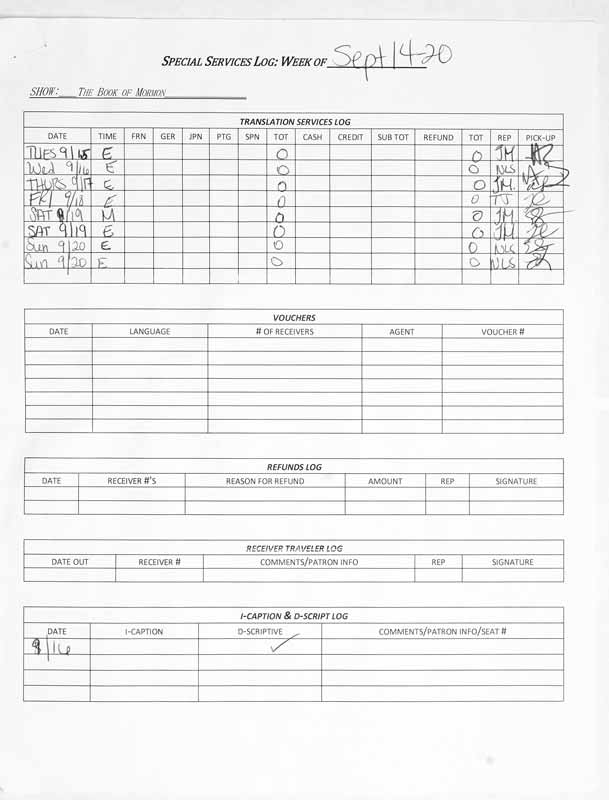 SPECIAL SERVICES LOG: WEEK OF Sept 14-20
SHOW: THE BOOK OF MORMON
TRANSLATION SERVICES LOG
DATE TIME FRN GER JPN PTG SPN TOT CASH CREDIT SUB TOT REFUND TOT REP PICK-UP
TUES 9/15 E 0 0 JM
Wed 9/16 E 0 0 NLS
THURS 9/17 E 0 0 JM.
FRI 9/18 E 0 0 TJ
SAT 9/19 M 0 0 JM
SAT 9/19 E 0 0 JM
Sun 9/20 E 0 0 NLS
Sun 9/20 E 0 0 NLS
VOUCHERS
DATE LANGUAGE # OF RECEIVERS AGENT VOUCHER #
REFUNDS LOG
DATE RECEIVER #'S REASON FOR REFUND AMOUNT REP SIGNATURE
RECEIVER TRAVELER LOG
DATE OUT RECEIVER # COMMENTS/PATRON INFO REP SIGNATURE
I-CAPTION & D-SCRIPT LOG
DATE I-CAPTION D-SCRIPTIVE COMMENTS/PATRON INFO/SEAT #
9/16 ✓